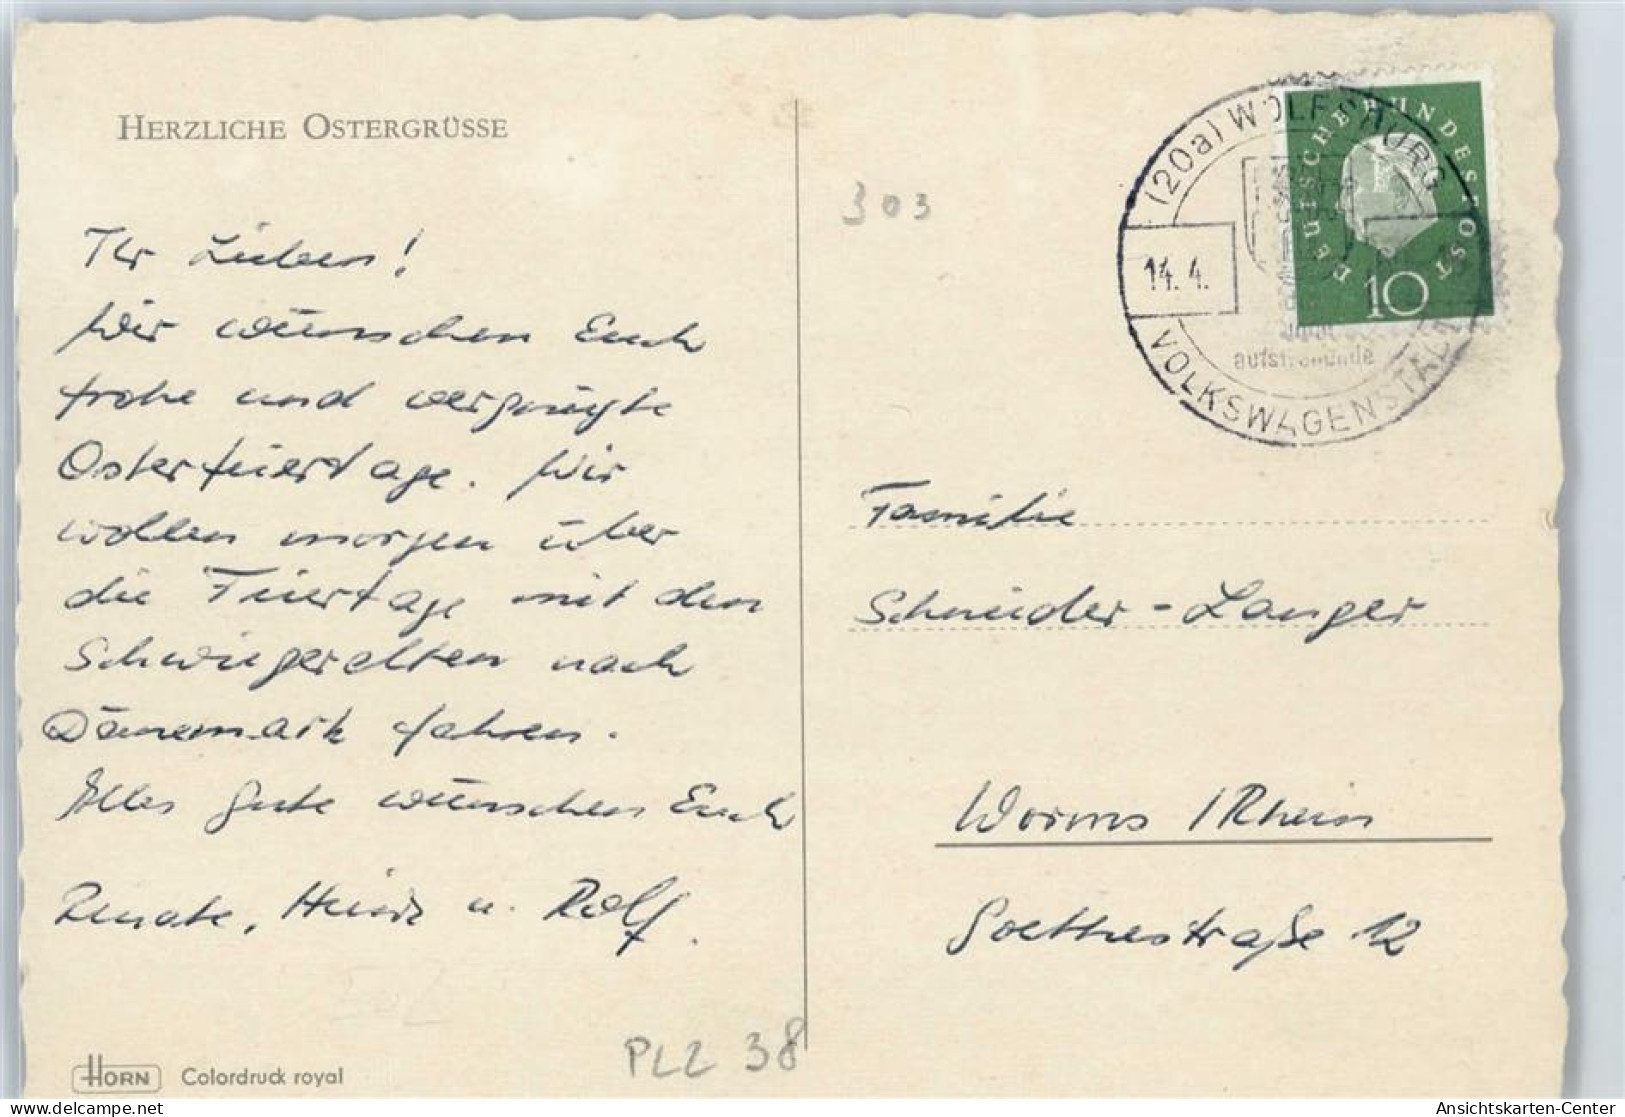 HERZLICHE OSTERGRÜSSE
Ihr Lieben!
Wir wünschen Euch
frohe und vergnügte
Osterfeiertage. Wir
wollen morgen über
die Feiertage mit den
Schwiegereltern nach
Dänemark fahren.
Alles Gute wünschen Euch
Renate, Heinz u. Rolf.
HORN Colordruck royal
PLZ 38
303
(20a) WOLFSBURG
14.4.
VOLKSWAGENSTADT
DEUTSCHE BUNDESPOST
10
Familie
Schneider-Langer
Worms /Rhein
Goethestraße 12
Ansichtskarten-Center